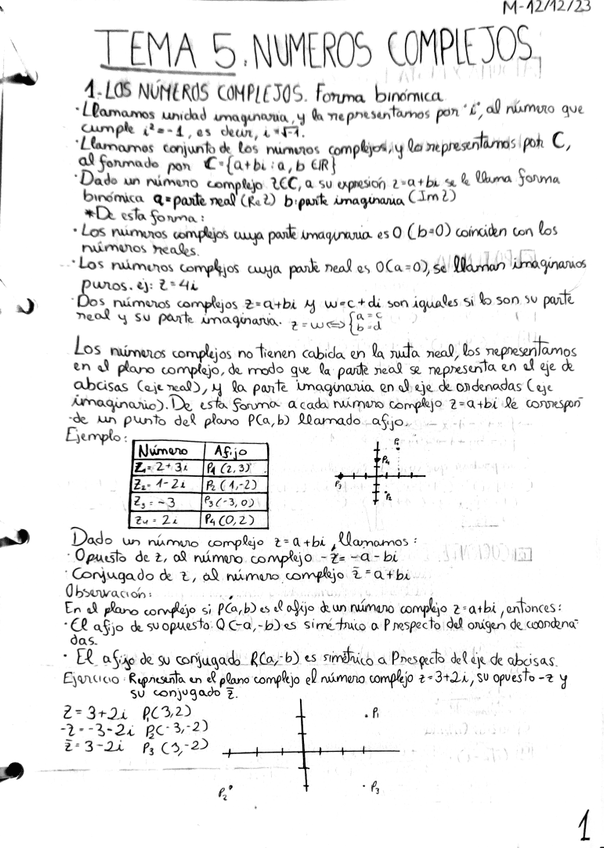 M-12/12/23
TEMA 5. NUMEROS COMPLEJOS
1.-LOS NÚMEROS COMPLEJOS. Forma binómica
· Llamamos unidad imaginaria, y la representamos por "i", al número que
cumple i²=-1, es decir, i=√-1.
· Llamamos conjunto de los números complejos, y lo representamos por C,
al formado por C={a+bi : a, b ∈ IR}
· Dado un número complejo Z∈C, a su expresión z=a+bi se le llama forma
binómica a=parte real (Re z) b:parte imaginaria (Im z)
*De esta forma:
· Los números complejos cuya parte imaginaria es 0 (b=0) coinciden con los
números reales.
· Los números complejos cuya parte real es 0(a=0), se llaman imaginarios
puros. ej: z=4i
· Dos números complejos z=a+bi y w=c+di son iguales si lo son su parte
real y su parte imaginaria. z=w⇔{a=c
b=d
Los números complejos no tienen cabida en la recta real, los representamos
en el plano complejo, de modo que la parte real se representa en el eje de
abcisas (eje real), y la parte imaginaria en el eje de ordenadas (eje
imaginario). De esta forma a cada número complejo z=a+bi le correspon-
de un punto del plano P(a,b) llamado afijo.
Ejemplo:
Número Afijo
Z₁=2+3i P₁(2,3)
Z₂=1-2i P₂(1,-2)
Z₃=-3 P₃(-3,0)
Z₄=2i P₄(0,2)
P₁
P₄
P₃
P₂
Dado un número complejo z=a+bi, llamamos:
· Opuesto de z, al número complejo -z=-a-bi
· Conjugado de z, al número complejo z̄=a+bi
Observación:
En el plano complejo si P(a,b) es el afijo de un número complejo z=a+bi, entonces:
· El afijo de su opuesto Q(-a,-b) es simétrico a P respecto del origen de coordena-
das.
· El afijo de su conjugado R(a,-b) es simétrico a P respecto del eje de abcisas.
Ejercicio: Representa en el plano complejo el número complejo z=3+2i, su opuesto -z y
su conjugado z̄.
Z=3+2i P₁(3,2)
-z=-3-2i P₂(-3,-2)
z̄=3-2i P₃(3,-2)
P₁
P₂
P₃
1